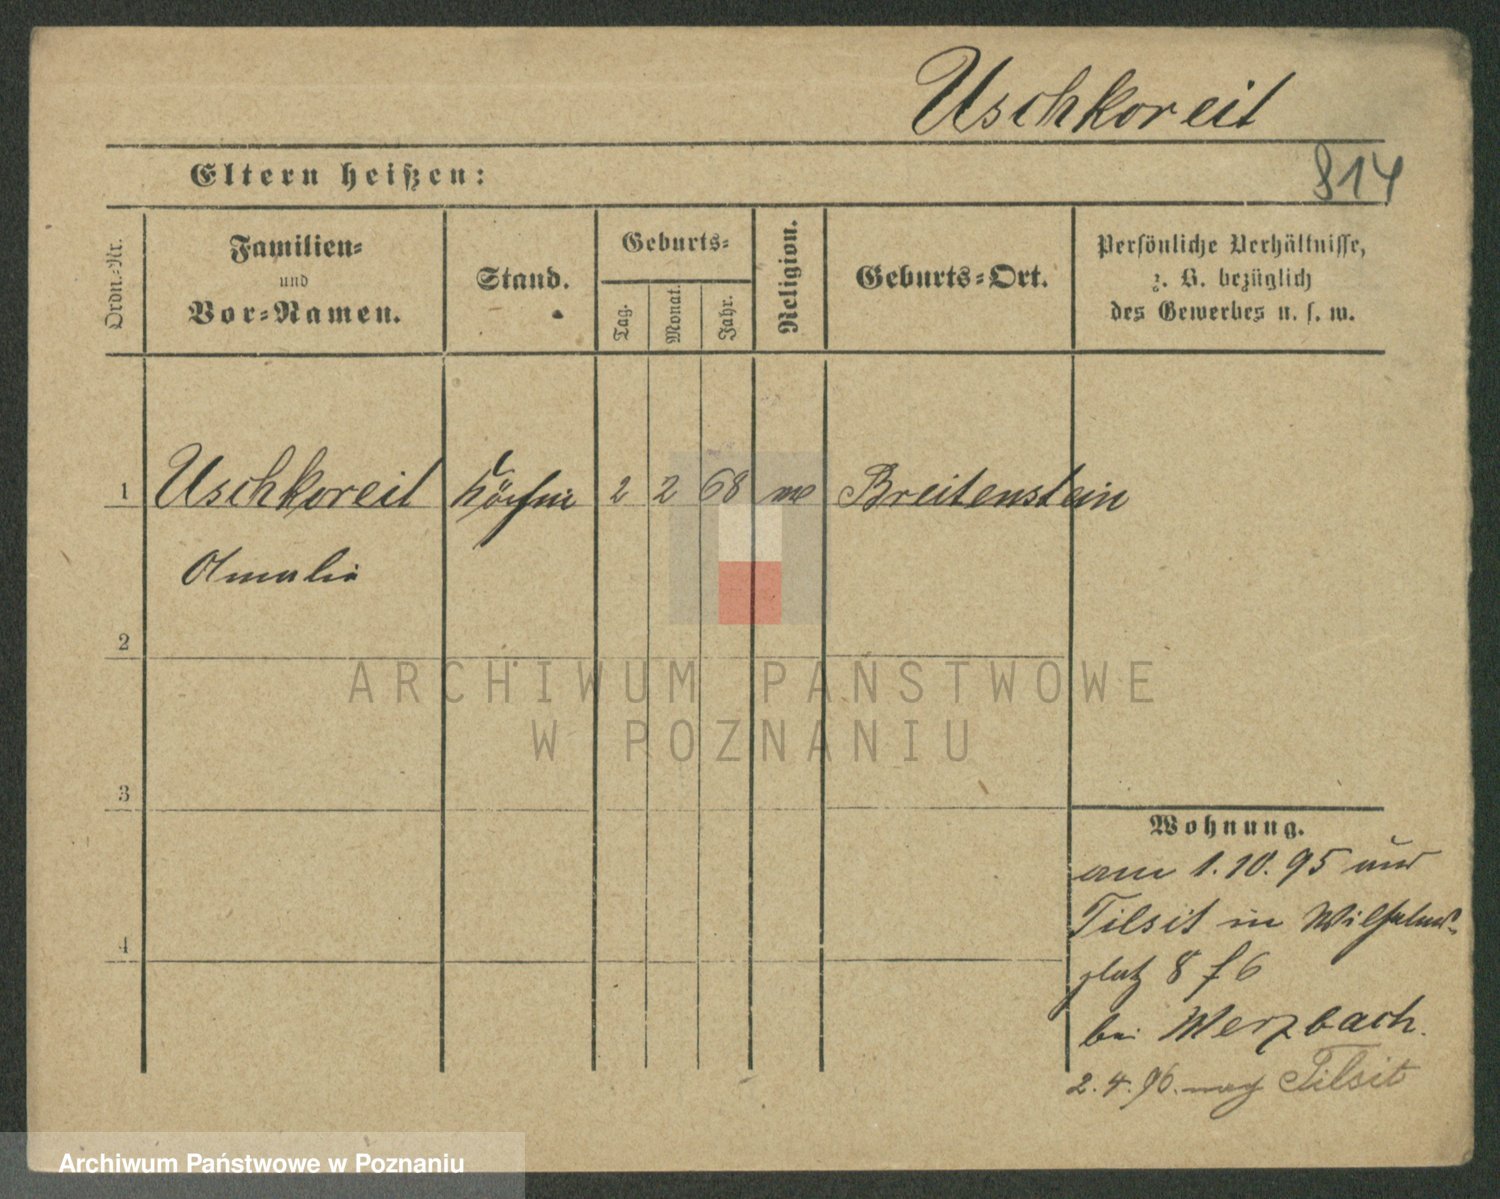 Uschkoreit
814
Eltern heißen:
Ordn.-Nr.
Familien-
und
Vor-Namen.
Stand.
Geburts-
Tag.
Monat.
Jahr.
Religion.
Geburts-Ort.
Persönliche Verhältnisse,
z. B. bezüglich
des Gewerbes u. s. w.
1 Uschkoreit Köchin 2 2 68 Breitenstein
Amalie
2
3
4
Wohnung.
am 1.10.95 aus
Tilsit in Wilhelms-
platz 8 f 6
bei Merzbach.
2.4.96. nach Tilsit
ARCHIWUM PAŃSTWOWE
W POZNANIU
Archiwum Państwowe w Poznaniu